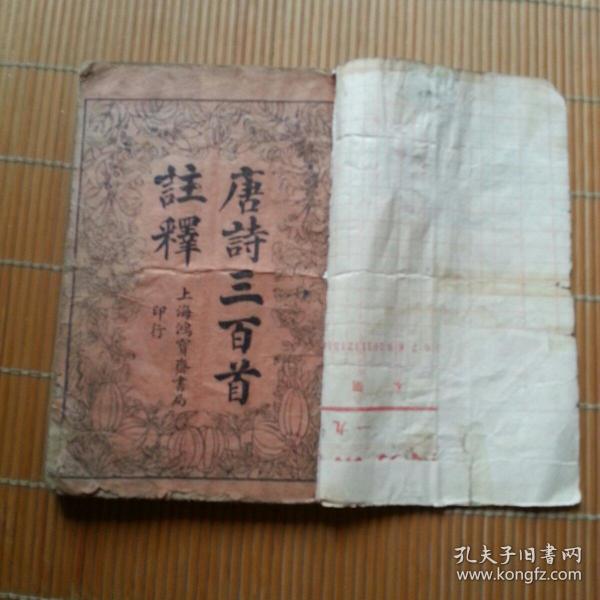 唐詩三百首
註釋
上海鴻寶齋書局
印行
一九
孔夫子旧书网
www.kongfz.com